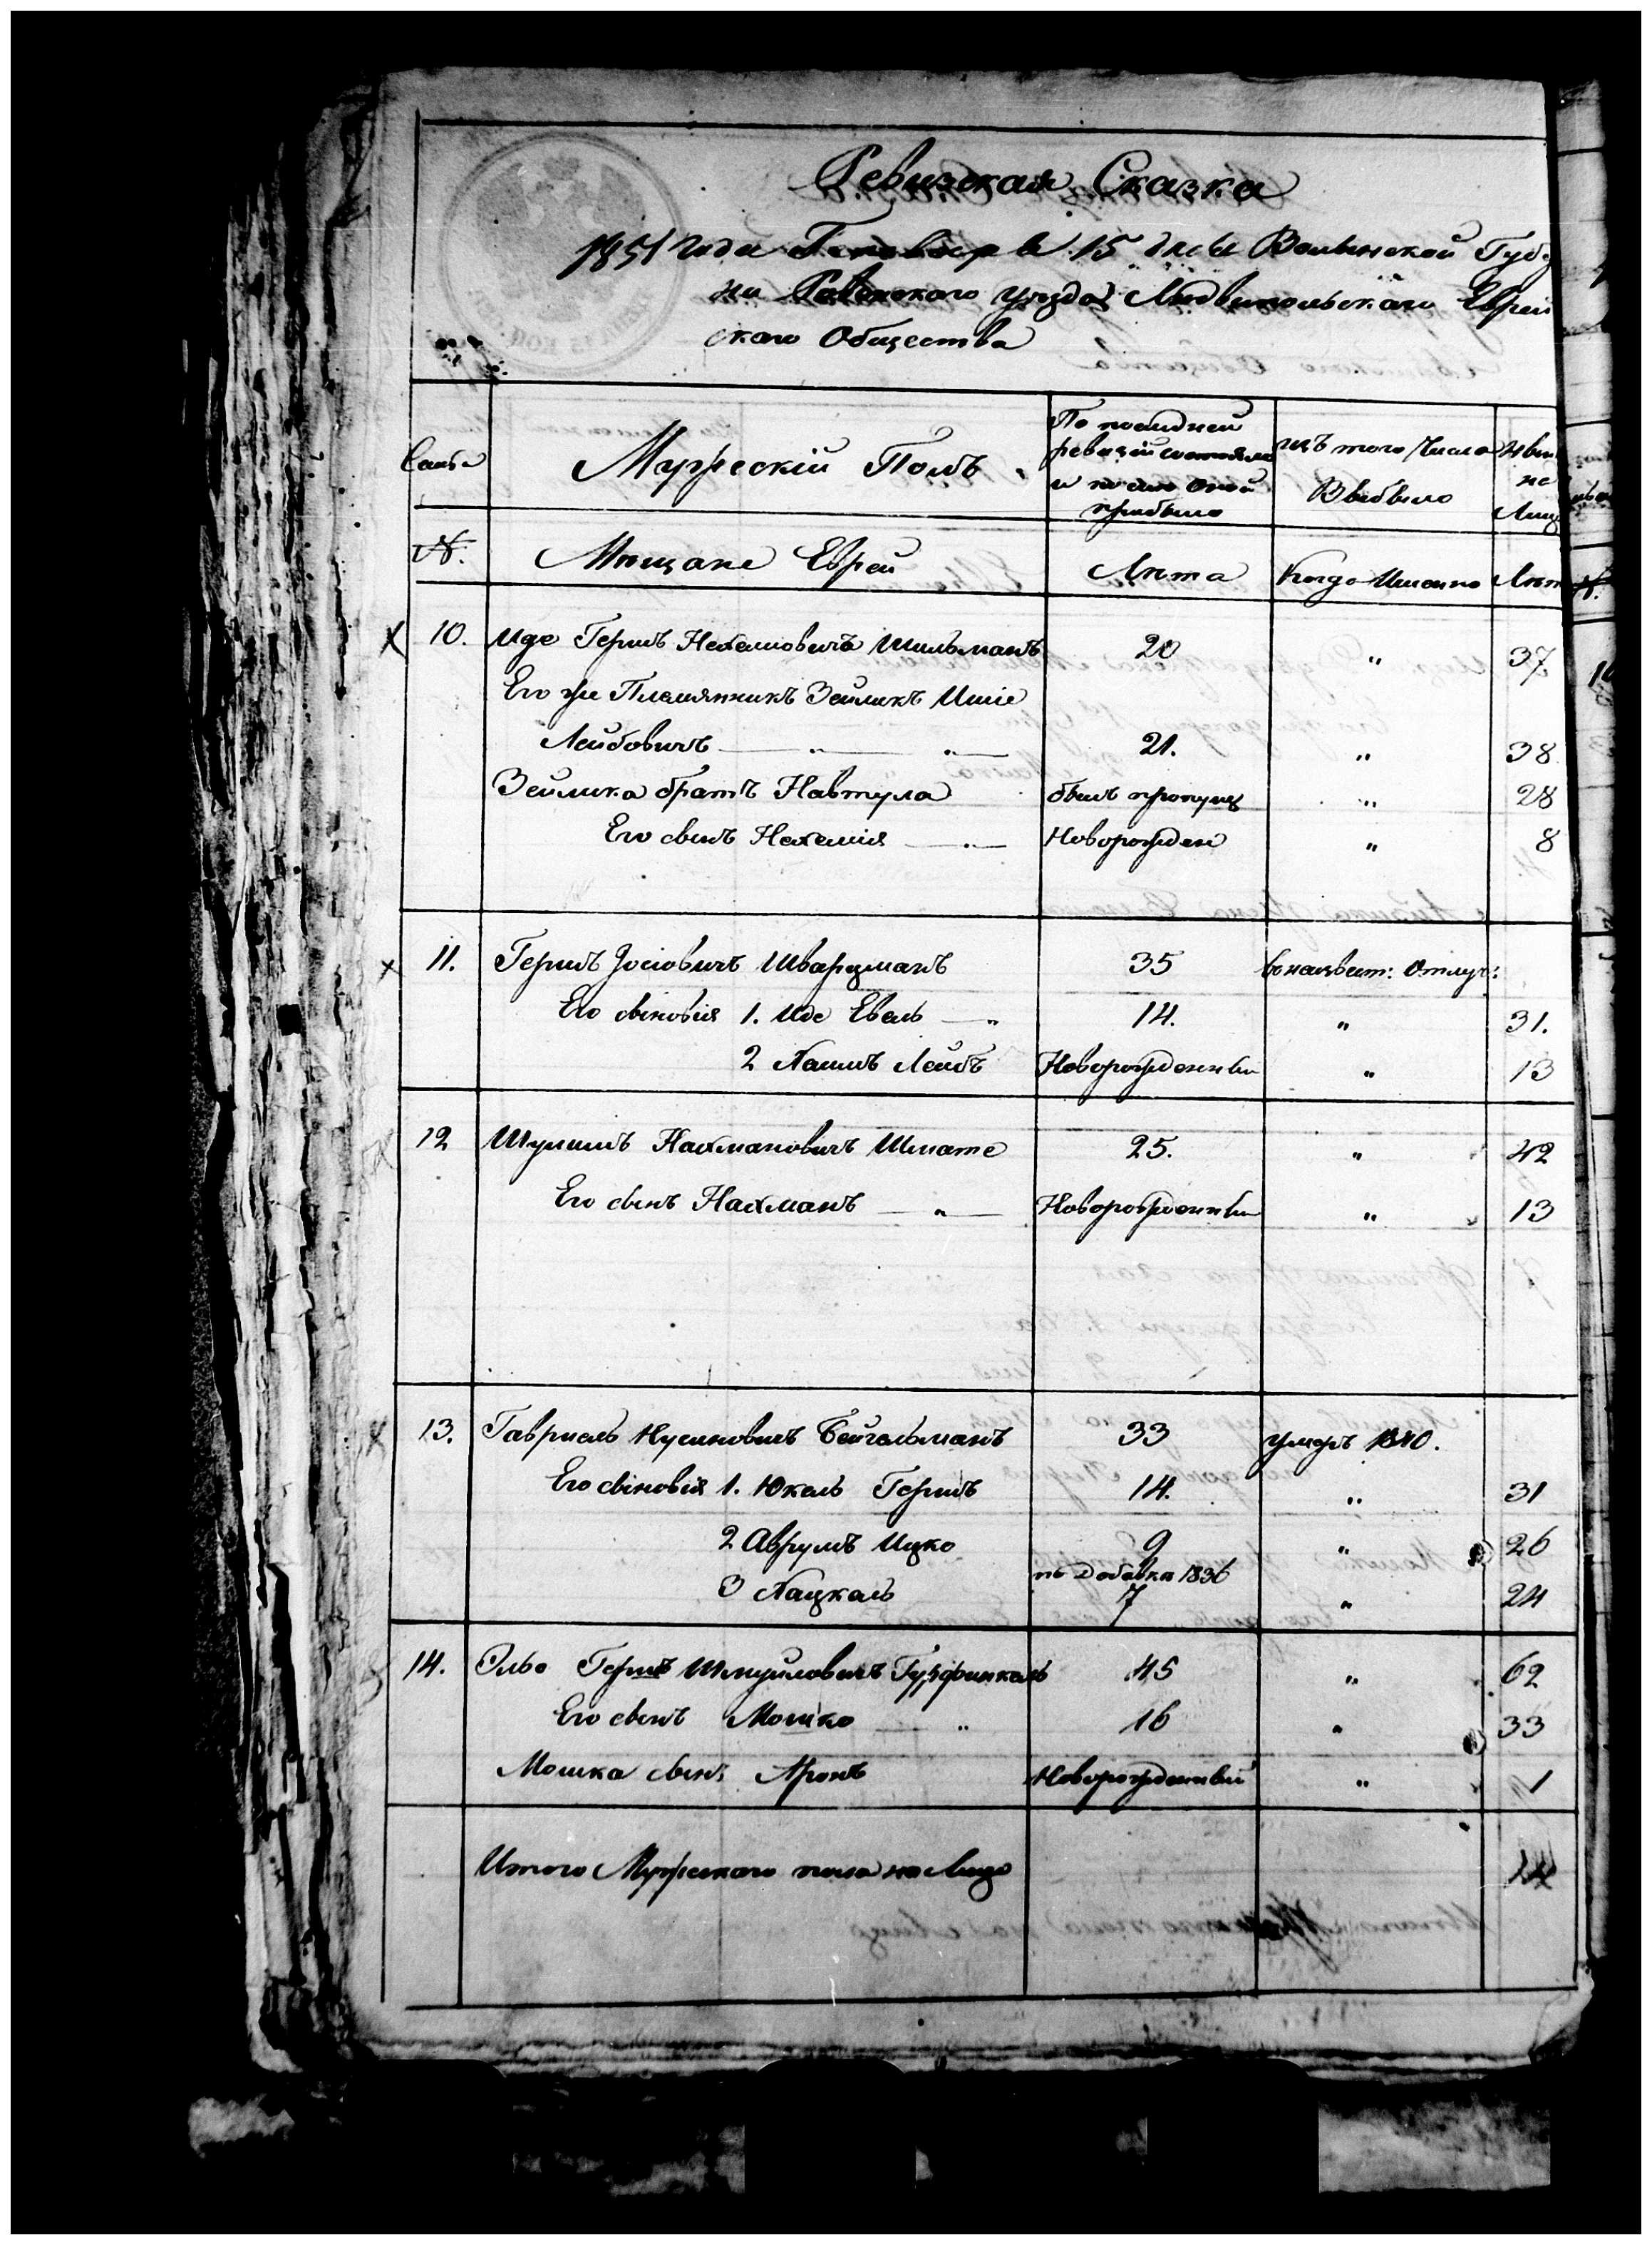 Ревизская Сказка
1851 года Генваря 15 дня Волынской Губе
ни Ровенского уезда Людвипольскаго Еврей
скаго Общества
Мужескій Полъ
По последней
ревизіи состояло
и после оной
прибыло
изъ того Числа
Выбыло
ныне
на
Лицо
№.
Мещане Евреи
Лета
Когда Именно
Лета
10. Иде Гершъ Нехемовичъ Шильманъ 20 " 37
Его же Племянникъ Зейликъ Шліе
Лейбовичъ " " 21. " 38
Зейлика братъ Навтула былъ пропущ " 28
Его сынъ Нехемія Новорожден " 8
11. Гершъ Іосіовичъ Шварцманъ 35 в неизвест: отлуч:
Его сыновія 1. Иде Евель " 14. " 31.
2 Хаимъ Лейбъ Новорожденны " 13
12 Шулимъ Нахмановичъ Шмате 25. " 42
Его сынъ Нахманъ " Новорожденны " 13
13. Гавриель Нусиновичъ Бейгельманъ 33 умеръ 1840.
Его сыновія 1. Юкель Гершъ 14. " 31
2 Аврумъ Ицко 9 " 26
по Добавки 1836
3 Хацкель 7 " 24
14. Эльо Гершъ Шмуйловичъ Гурфинкель 45 " 62
Его сынъ Мошко " 16 " 33
Мошка сынъ Аронъ Новорожденный " 1
Итого Мужескаго пола на Лицо